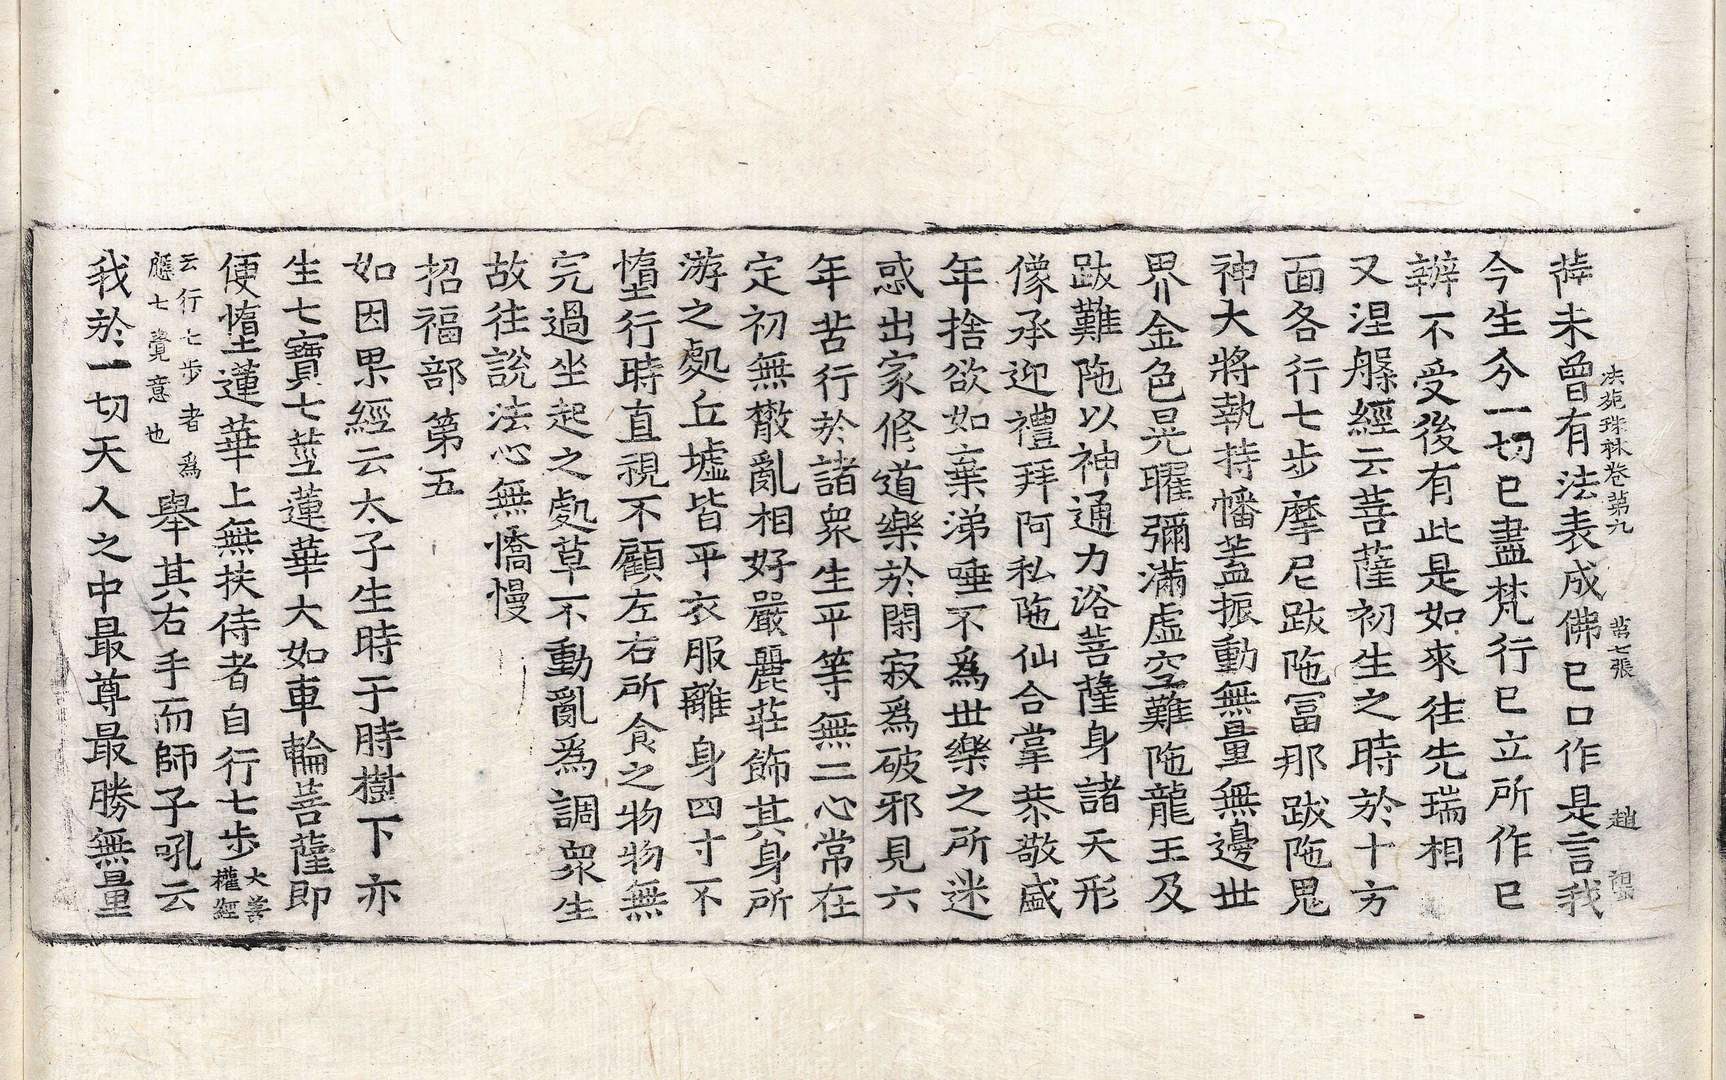 法苑珠林卷第九 第七張 趙
葬未曾有法表成佛已口作是言我
今生分一切已盡梵行已立所作已
辦不受後有此是如來往先瑞相
又涅槃經云菩薩初生之時於十方
面各行七步摩尼跋陁冨那跋陁鬼
神大將執持幡蓋振動無量無邊世
界金色晃曜彌滿虛空難陁龍王及
跋難陁以神通力浴菩薩身諸天形
像承迎禮拜阿私陁仙合掌恭敬盛
年捨欲如棄涕唾不爲世樂之所迷
惑出家修道樂於閑寂爲破邪見六
年苦行於諸衆生平等無二心常在
定初無散亂相好嚴麗莊飾其身所
游之處丘墟皆平衣服離身四寸不
墮行時直視不顧左右所食之物物無
完過坐起之處草不動亂爲調衆生
故往說法心無憍慢
招福部第五
如因果經云太子生時于時樹下亦
生七寶七莖蓮華大如車輪菩薩即
便墮蓮華上無扶侍者自行七步大善權經
云行七步者爲應七覺意也舉其右手而師子吼云
我於一切天人之中最尊最勝無量